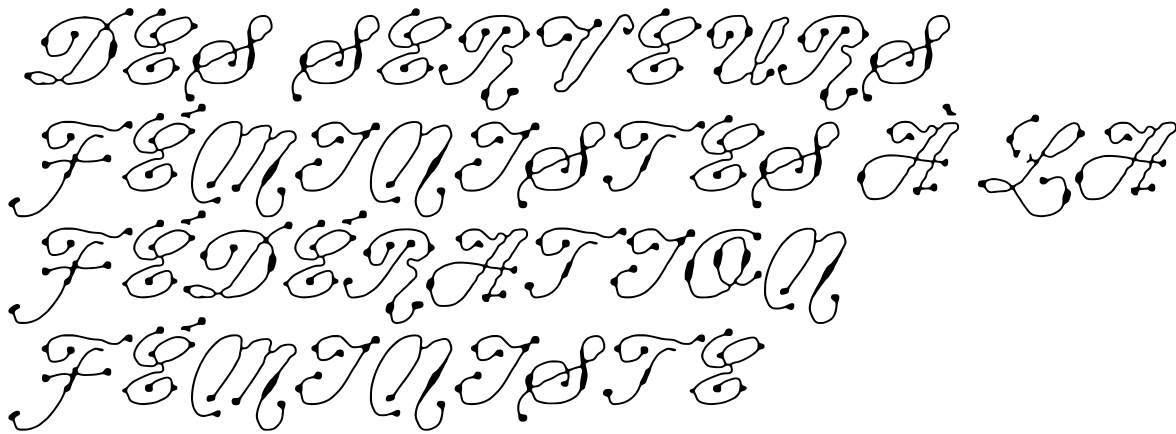 DES SERVEURS
FÉMINISTES À LA
FÉDÉRATION
FÉMINISTE